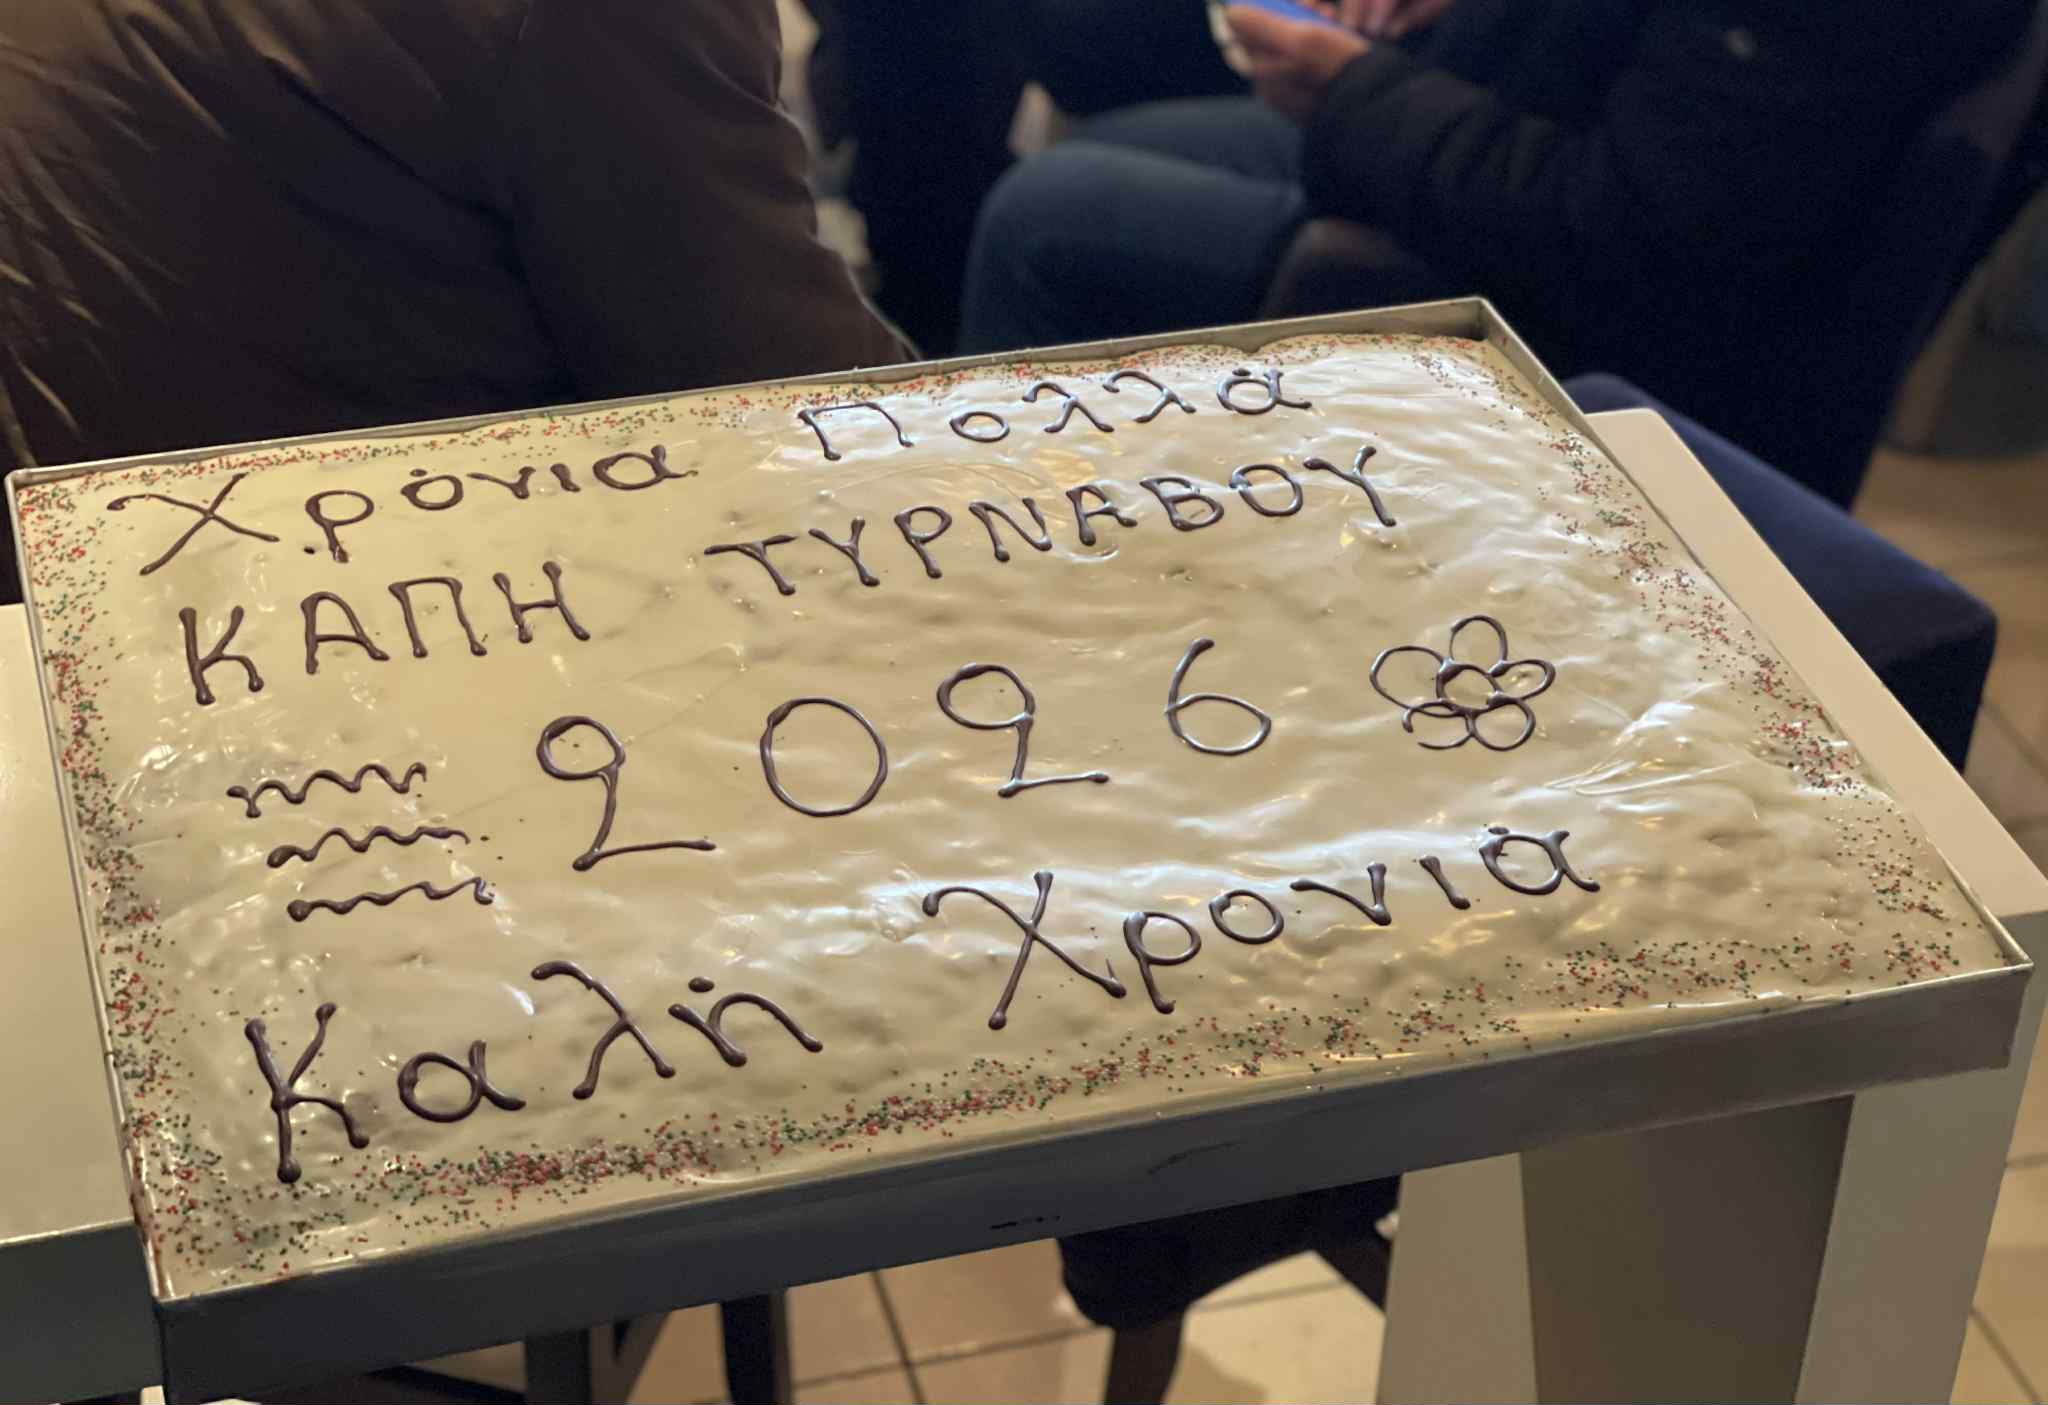 Χρόνια Πολλά
ΚΑΠΗ ΤΥΡΝΑΒΟΥ
2026
Καλή Χρονιά